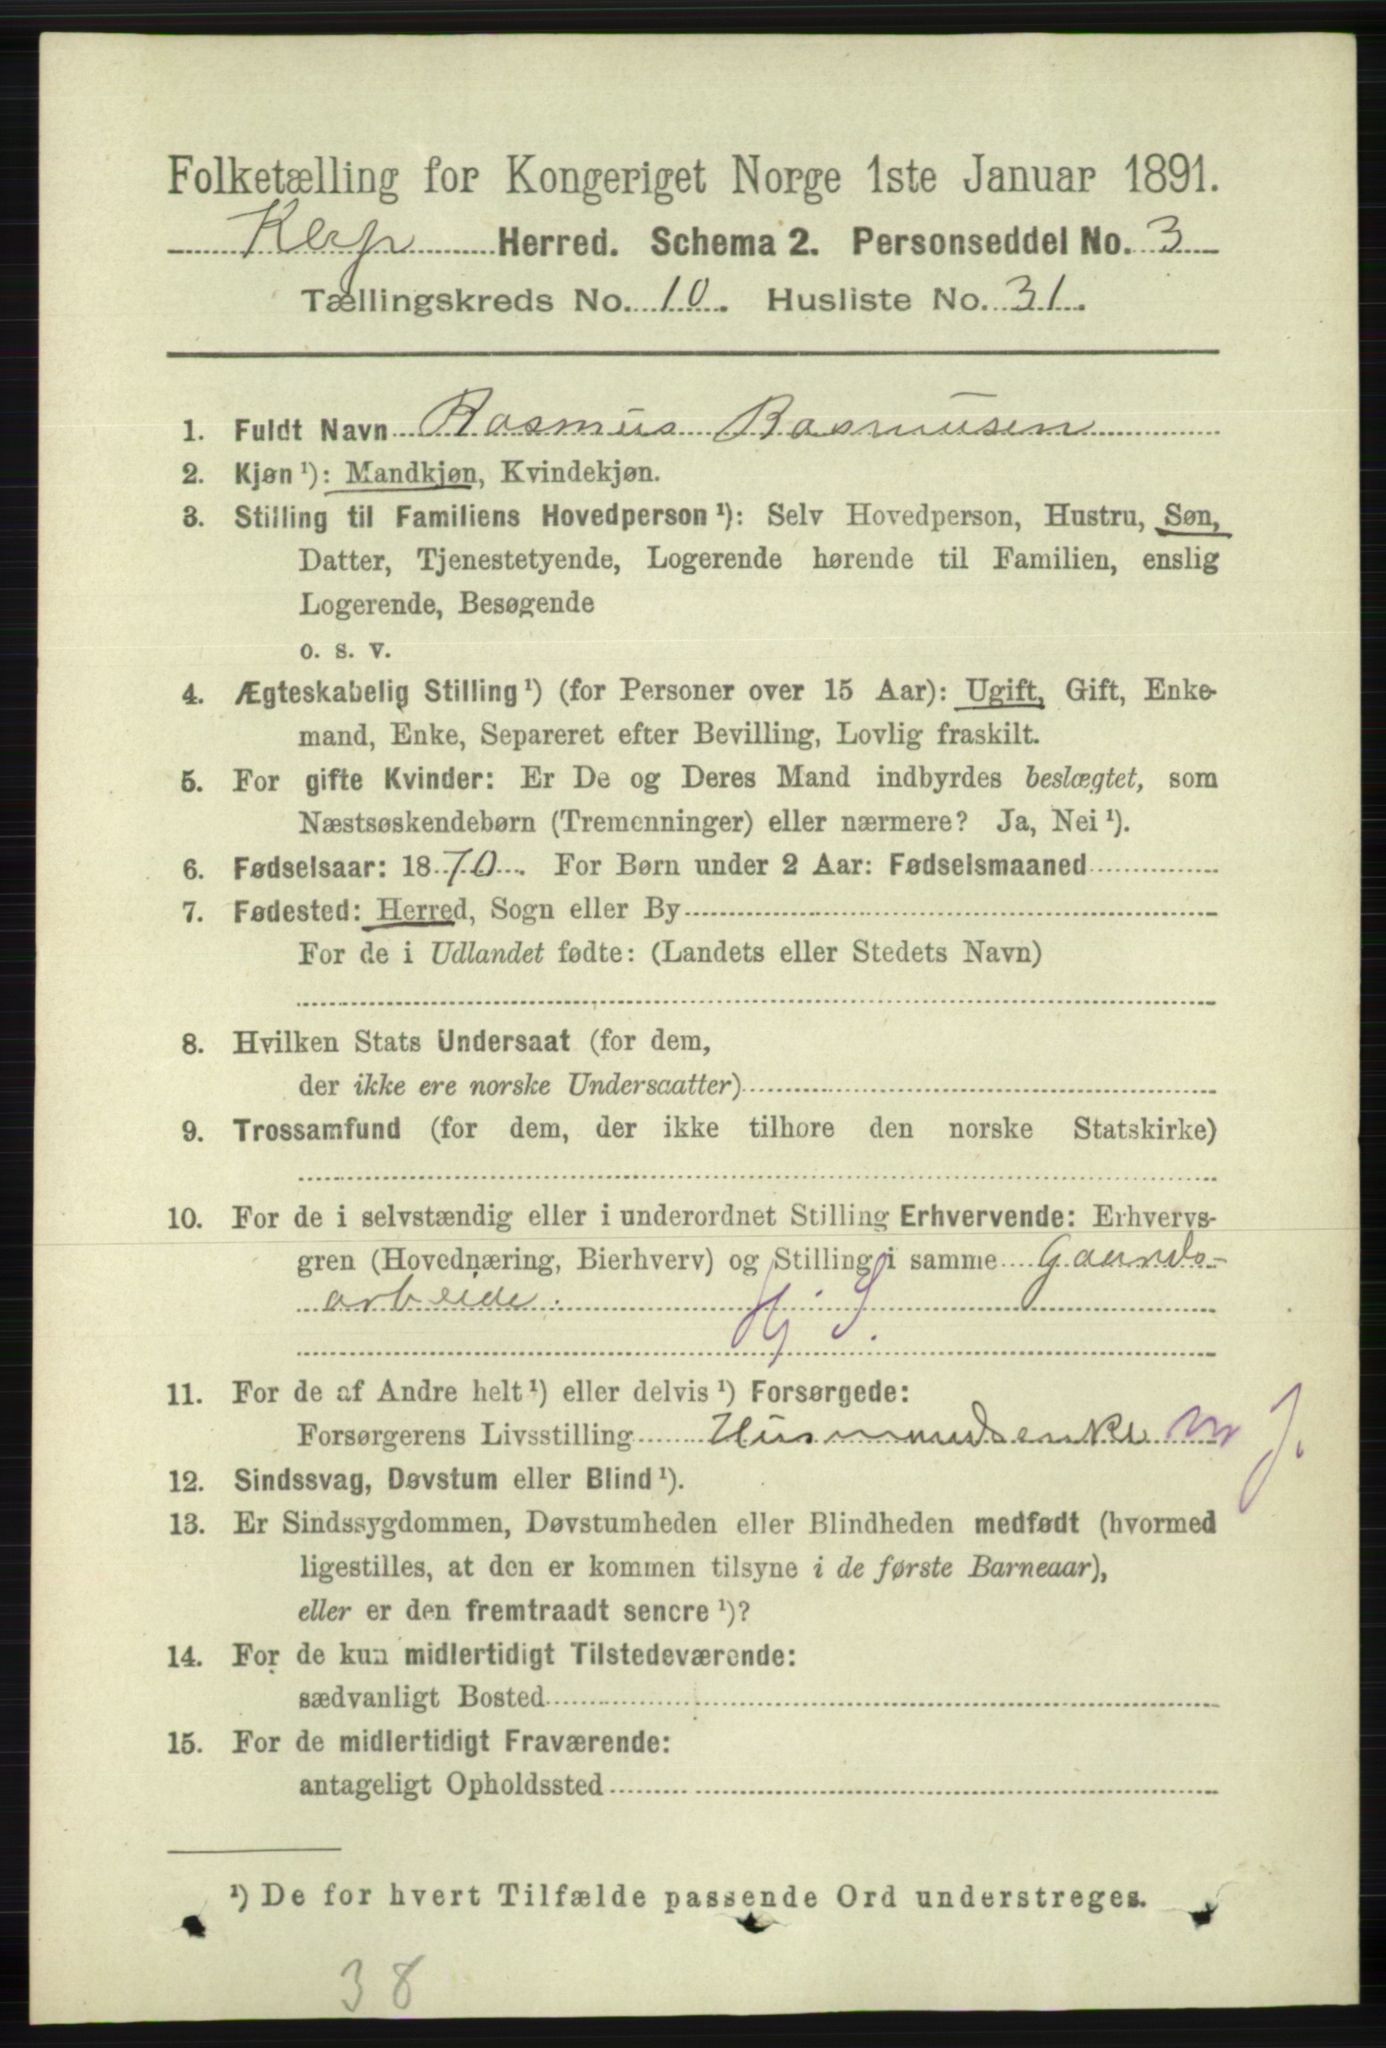 Folketælling for Kongeriget Norge 1ste Januar 1891.
Klep Herred. Schema 2. Personseddel No. 3
Tællingskreds No. 10. Husliste No. 31.
1. Fuldt Navn Rasmus Rasmusen
2. Kjøn ¹): Mandkjøn, Kvindekjøn.
3. Stilling til Familiens Hovedperson ¹): Selv Hovedperson, Hustru, Søn,
Datter, Tjenestetyende, Logerende hørende til Familien, enslig
Logerende, Besøgende
o. s. v.
4. Ægteskabelig Stilling ¹) (for Personer over 15 Aar): Ugift, Gift, Enke-
mand, Enke, Separeret efter Bevilling, Lovlig fraskilt.
5. For gifte Kvinder: Er De og Deres Mand indbyrdes beslægtet, som
Næstsøskendebørn (Tremenninger) eller nærmere? Ja, Nei ¹).
6. Fødselsaar: 1870. For Børn under 2 Aar: Fødselsmaaned
7. Fødested: Herred, Sogn eller By
For de i Udlandet fødte: (Landets eller Stedets Navn)
8. Hvilken Stats Undersaat (for dem,
der ikke ere norske Undersaatter)
9. Trossamfund (for dem, der ikke tilhøre den norske Statskirke)
10. For de i selvstændig eller i underordnet Stilling Erhvervende: Erhvervs-
gren (Hovednæring, Bierhverv) og Stilling i samme Gaards-
arbeide.
Hj. S.
11. For de af Andre helt ¹) eller delvis ¹) Forsørgede:
Forsørgerens Livsstilling Husmandsenke m J.
12. Sindssvag, Døvstum eller Blind ¹).
13. Er Sindssygdommen, Døvstumheden eller Blindheden medfødt (hvormed
ligestilles, at den er kommen tilsyne i de første Barneaar),
eller er den fremtraadt senere ¹)?
14. For de kun midlertidigt Tilstedeværende:
sædvanligt Bosted
15. For de midlertidigt Fraværende:
antageligt Opholdssted
¹) De for hvert Tilfælde passende Ord understreges.
38